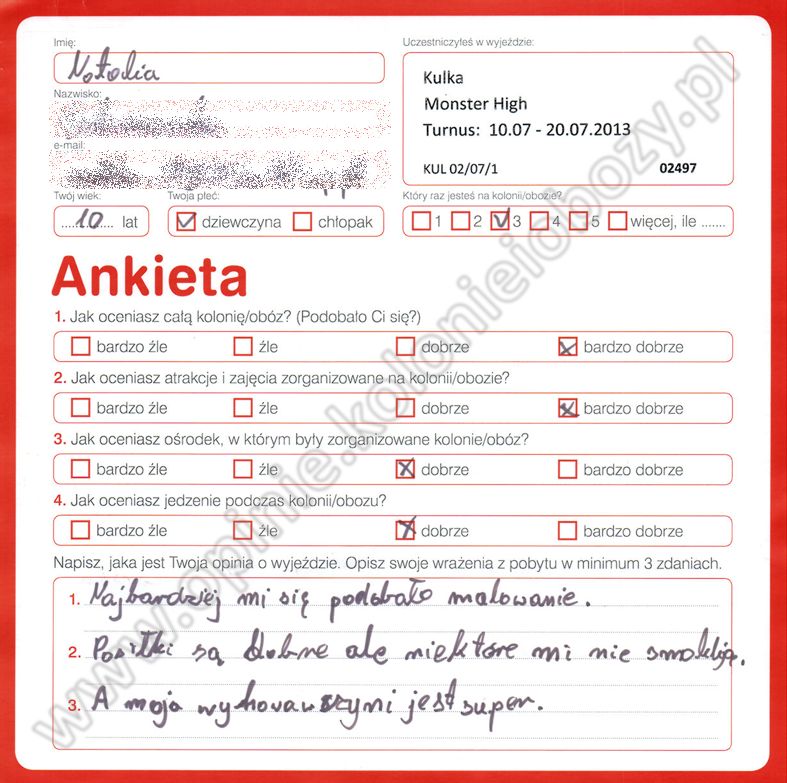 Imię:
Natalia
Uczestniczyłeś w wyjeździe:
Kulka
Monster High
Turnus: 10.07 - 20.07.2013
KUL 02/07/1 02497
Nazwisko:
e-mail:
Twój wiek: Twoja płeć: Który raz jesteś na kolonii/obozie?
10 lat dziewczyna chłopak 1 2 3 4 5 więcej, ile .......
Ankieta
1. Jak oceniasz całą kolonię/obóz? (Podobało Ci się?)
bardzo źle źle dobrze bardzo dobrze
2. Jak oceniasz atrakcje i zajęcia zorganizowane na kolonii/obozie?
bardzo źle źle dobrze bardzo dobrze
3. Jak oceniasz ośrodek, w którym były zorganizowane kolonie/obóz?
bardzo źle źle dobrze bardzo dobrze
4. Jak oceniasz jedzenie podczas kolonii/obozu?
bardzo źle źle dobrze bardzo dobrze
Napisz, jaka jest Twoja opinia o wyjeździe. Opisz swoje wrażenia z pobytu w minimum 3 zdaniach.
1. Najbardziej mi się podobało malowanie.
2. Posiłki są dobre ale niektóre mi nie smakują.
3. A moja wyhovawszyni jest super.
www.opinie.kolonieiobozy.pl